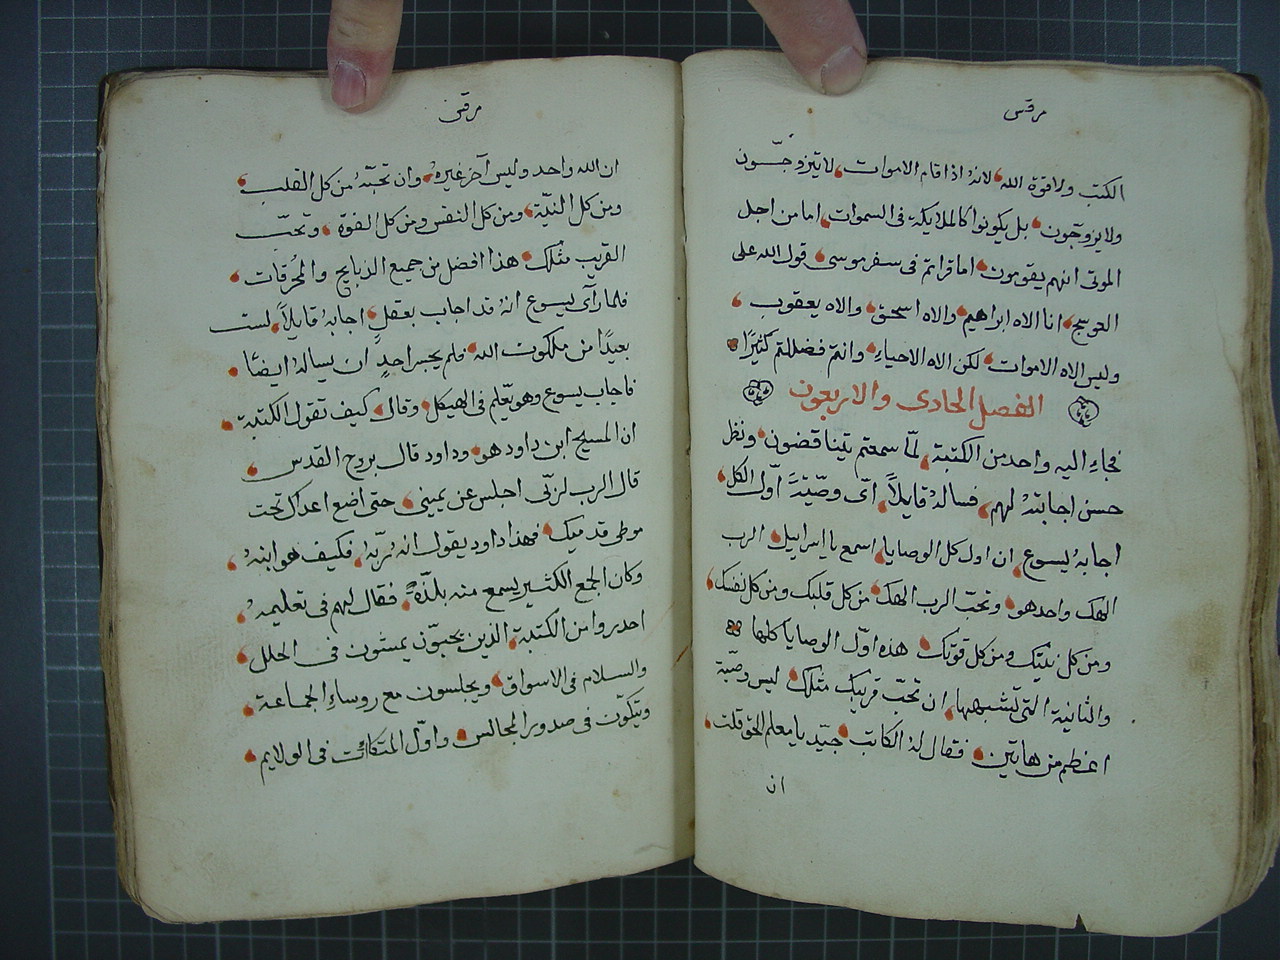 مرقس
الكتب ولا قوة الله لانهُ اذا قام الاموات لا يتزوجّون
ولا يزوجّون بل يكونوا كالملايكة فى السموات اما من اجل
الموتى انهم يقومون اما قراتم فى سفر موسى قول الله على
العوسج انا الاه ابراهيم والاه اسحق والاه يعقوب
وليس الاه الاموات لكن الاه الاحياءِ وانتم فضللتم كثيرًا
الفصل الحادى والاربعون
فجاءِ اليه واحد من الكتبة لمّا سمعتم يتناقضون ونظر
حسن اجابتهُ لهم فسالهُ قايلاً اىّ وصيّتةً اوّل الكل
اجابهُ يسوع ان اول كل الوصايا اسمع يا اسراييل الرب
الهك واحد هو وتحبّ الرب الهك من كل قلبك ومن كل نفسك
ومن كل نيتك ومن كل قوتك هذه اوّل الوصايا كلها
والثانية التى تشبهها ان تحبّ قريبك مثلك ليس وصيّة
اعظم من هاتين فقال لهُ الكاتب جيّد يا معلم الحق قلت
ان
مرقس
ان الله واحد وليس آخر غيرهُ وان تحبّهُ من كل القلب
ومن كل النيّة ومن كل النفس ومن كل القوة وتحبّ
القريب مثلك هذا افضل من جميع الذبايح والمحُرقات
فلما رآى يسوع انهُ قد اجاب بعقلٍ اجابهُ قايلاً لست
بعيدًا من ملكوت الله فلم يجسر احدٍ ان يسالهُ ايضًا
فاجاب يسوع وهو يعّلم فى الهيكل وقال كيف تقول الكتبة
ان المسيح ابن داود هو وداود قال بروح القدس
قال الرب لربّى اجلس عن يمينى حتى اضع اعداك تحت
موطى قدميك فهذا داود يقول انهُ ربّهُ فكيف هو ابنهُ
وكان الجمع الكثير يسمع منه بلذّةٍ فقال لهم فى تعليمهُ
احدروا من الكتبة الذين يحبوّن يمشون فى الحلل
والسلام فى الاسواق ويجلسون مع روساءِ الجماعة
ويتكوّن فى صدور المجالس واوّل المتكاات فى الولايم